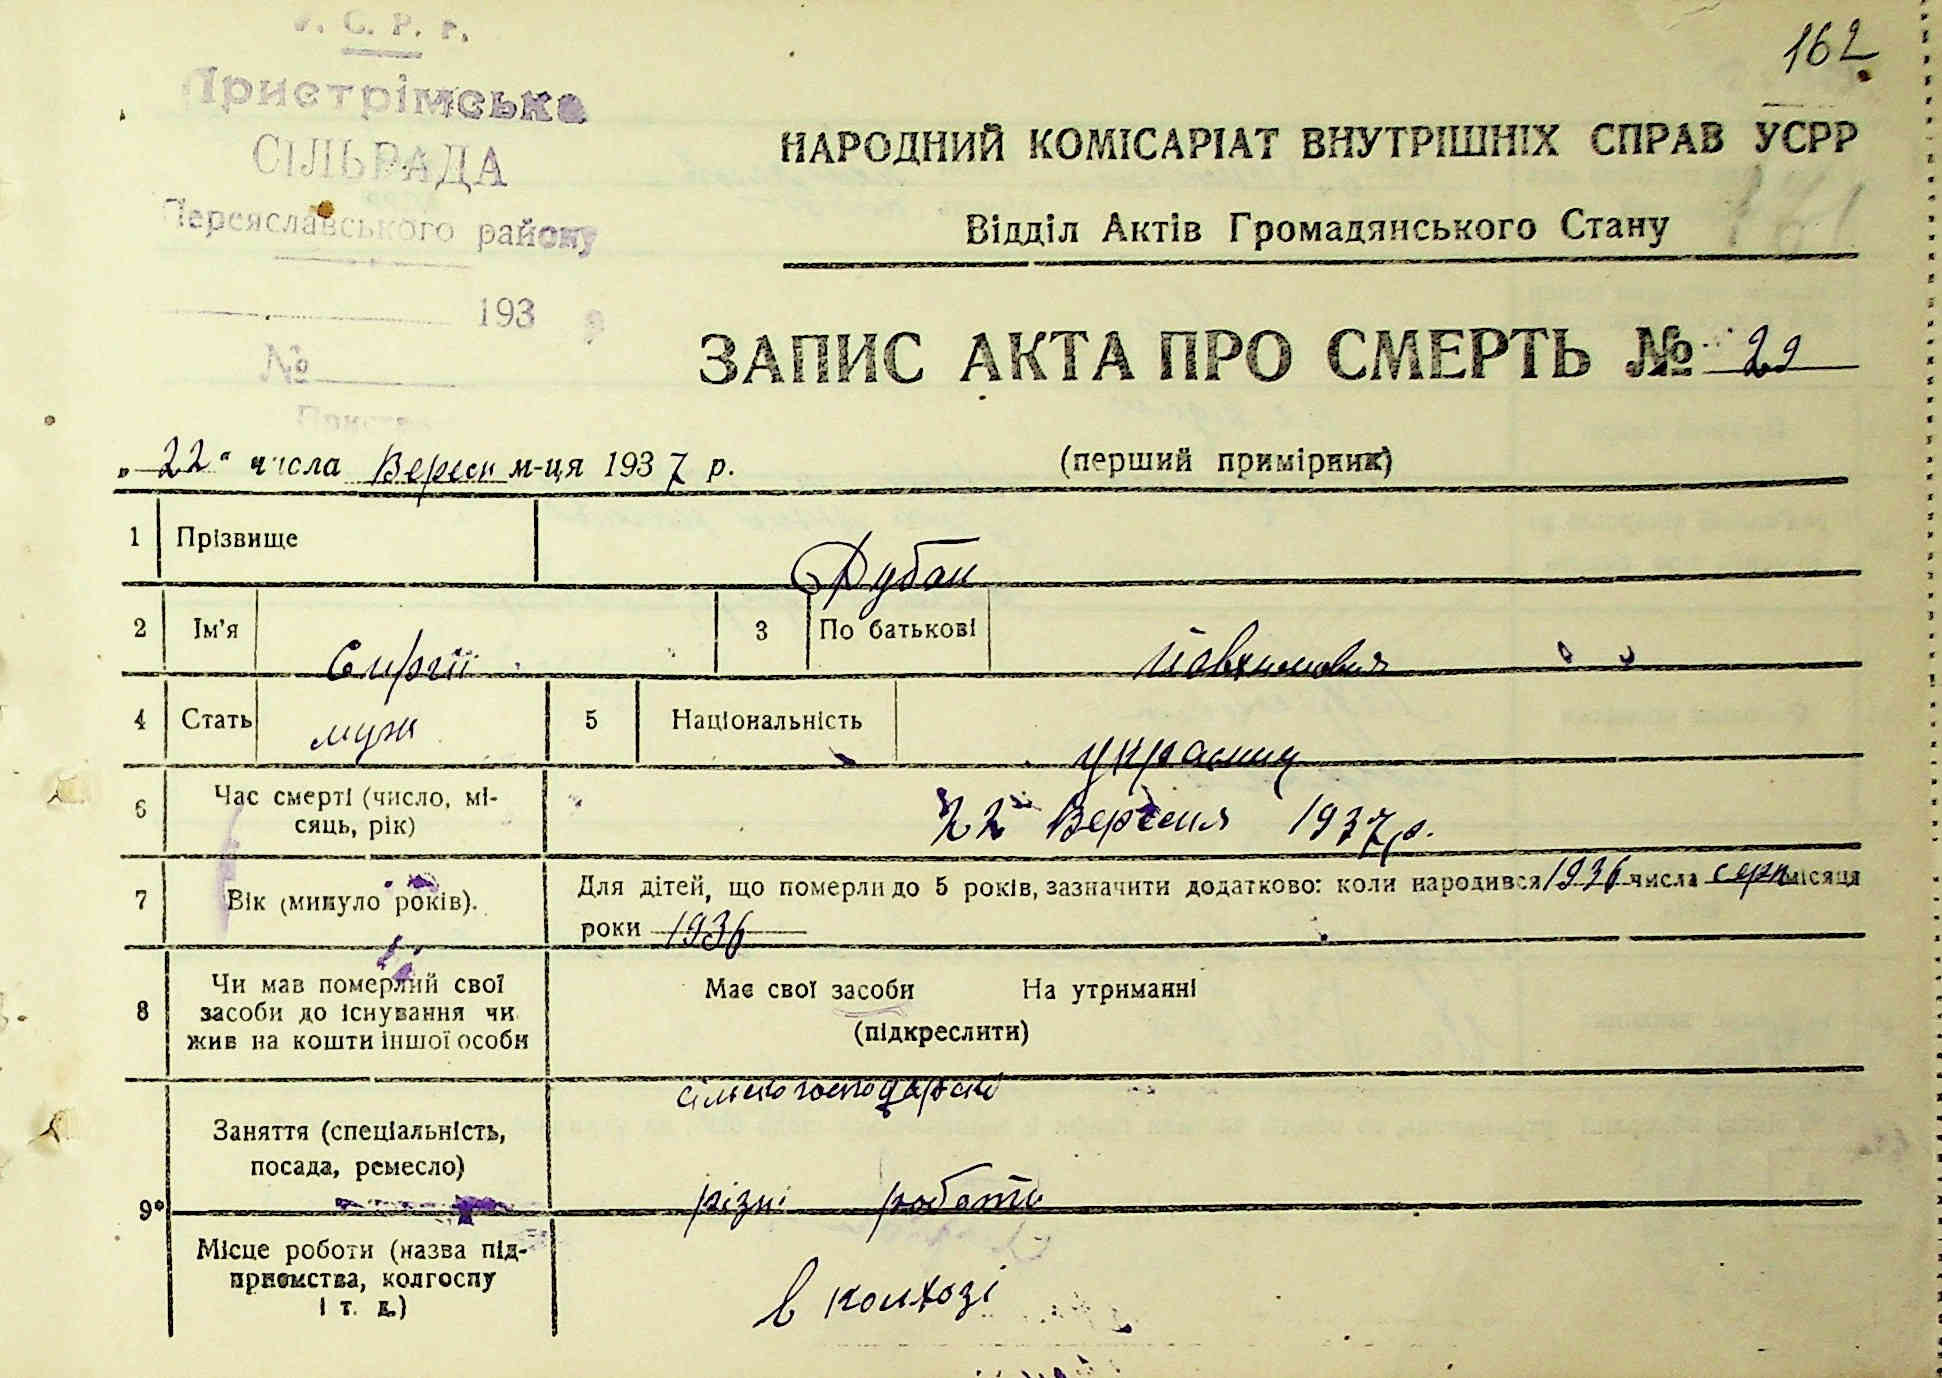 162
У. С. Р. Р.
Пристрімська
СІЛЬРАДА
Переяславського району
193
№
НАРОДНИЙ КОМІСАРІАТ ВНУТРІШНІХ СПРАВ УСРР
Відділ Актів Громадянського Стану
ЗАПИС АКТА ПРО СМЕРТЬ № 22
„22“ числа Вересн м-ця 1937 р. (перший примірник)
1 Прізвище Рубан
2 Ім'я Сиргій 3 По батькові
4 Стать муж 5 Національність українц
6 Час смерті (число, мі-
сяць, рік) 22 Вересня 1937 р.
7 Вік (минуло років). Для дітей, що померли до 5 років, зазначити додатково: коли народився 1936 числа серп місяця
роки 1936
8 Чи мав померлий свої
засоби до існування чи
жив на кошти іншої особи
Має свої засоби На утриманні
(підкреслити)
9 Заняття (спеціальність,
посада, ремесло)
сільськогосподарскі
різні роботи
Місце роботи (назва під-
приємства, колгоспу
і т. д.)
в колхозі